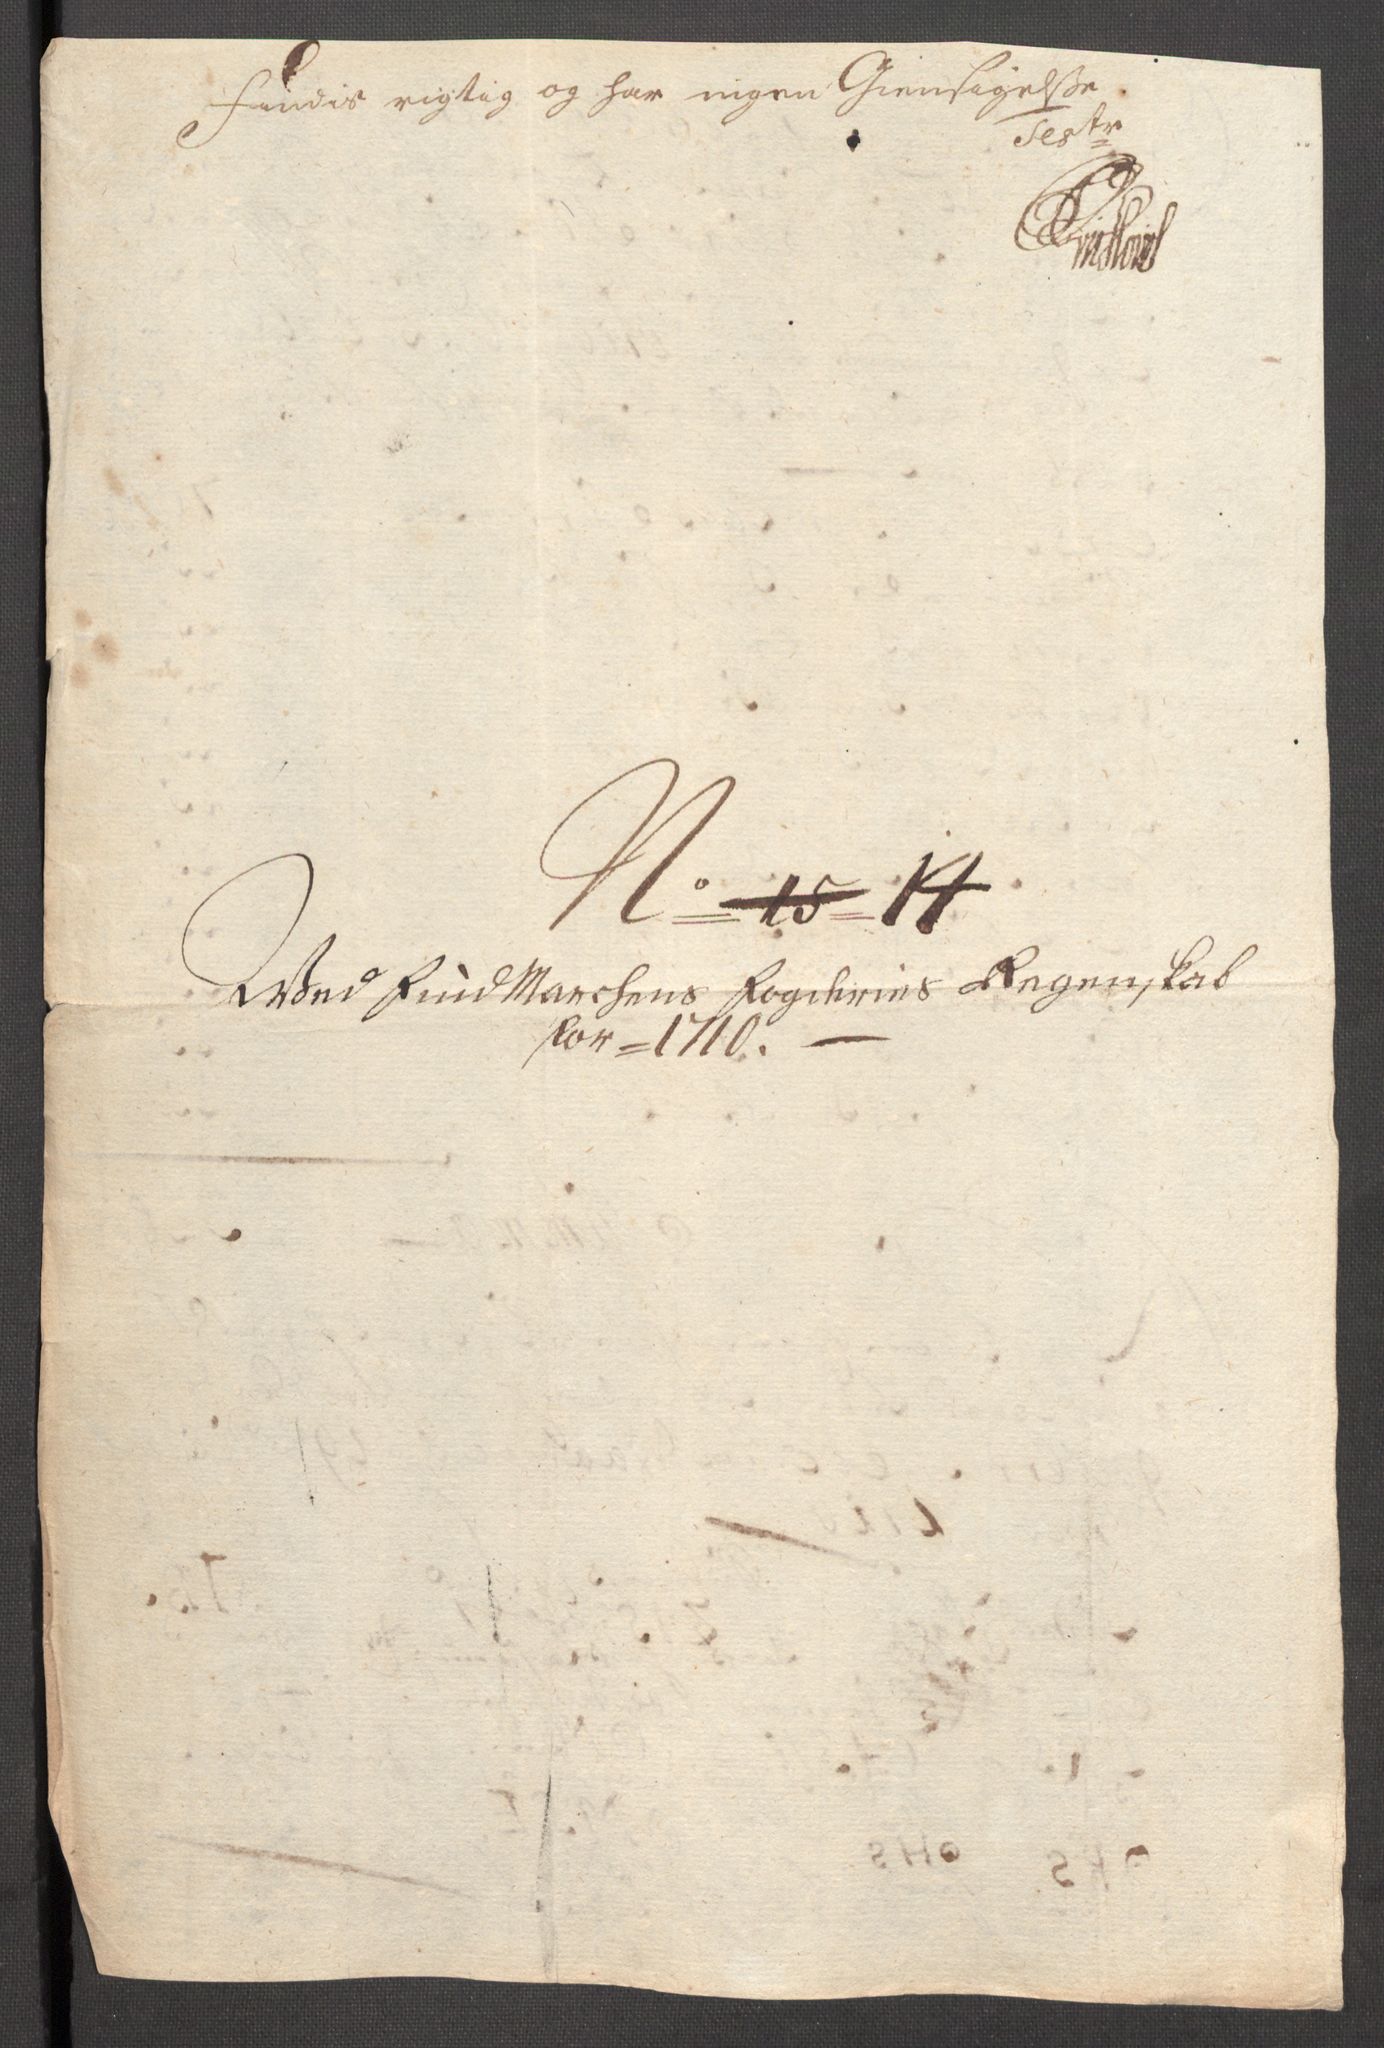 Findis rigtig og har ingen Giensigelsse
Test
No 15 14
Wed FindMarchens Fogderies Regenskab
for 1710.